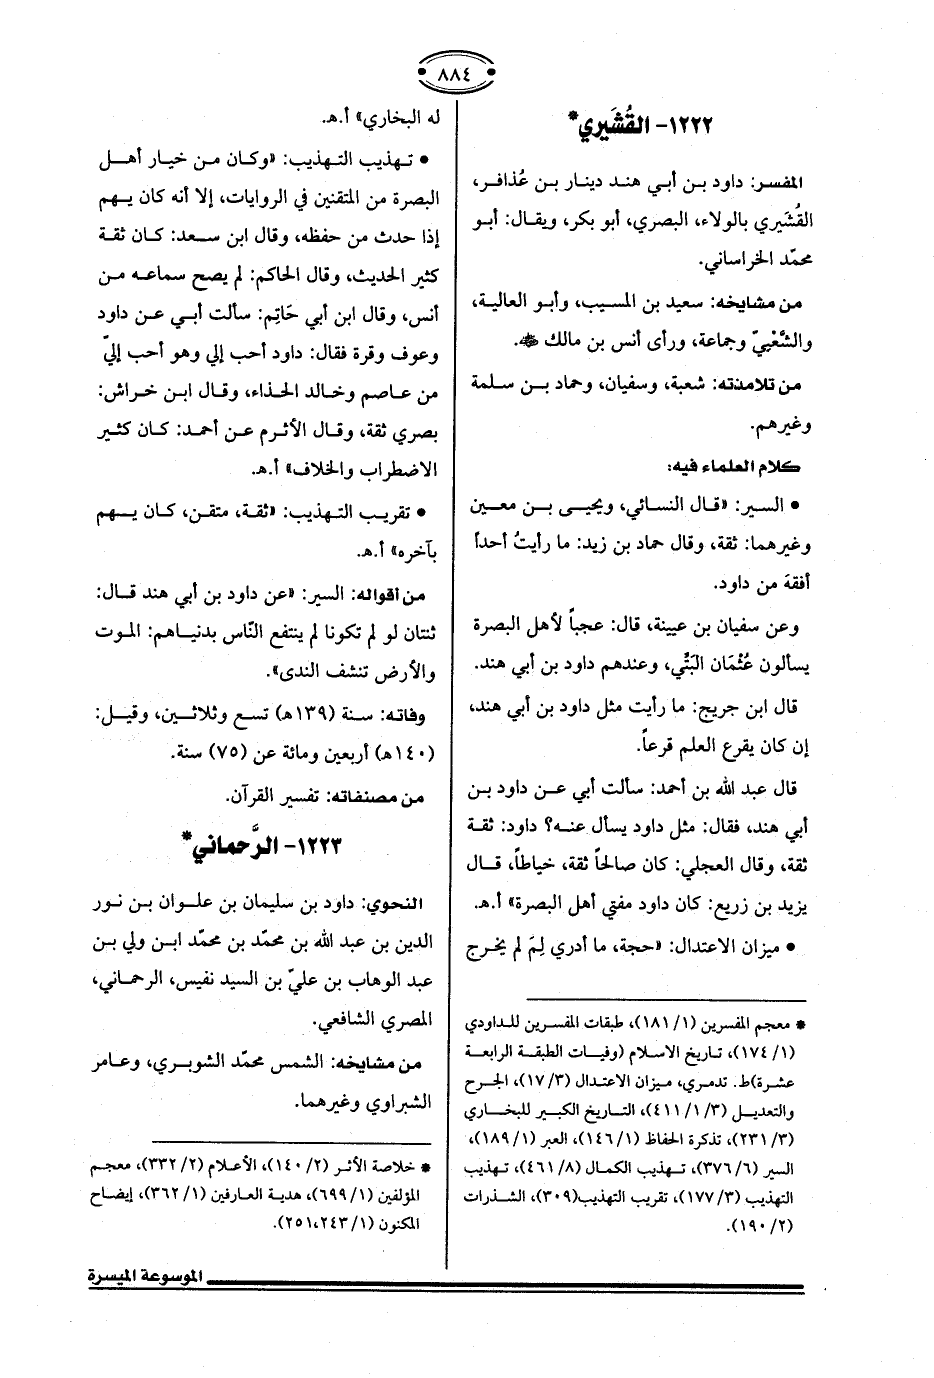 ٨٨٤
١٢٢٢- القُشَيري*
المفسر: داود بن أبي هند دينار بن عُذافر،
القُشَيري بالولاء، البصري، أبو بكر، ويقال: أبو
محمّد الخراساني.
من مشايخه: سعيد بن المسيب، وأبو العالية،
والشَّعْبيّ وجماعة، ورأى أنس بن مالك ﷺ.
من تلامذته: شعبة، وسفيان، وحماد بن سلمة
وغيرهم.
كلام العلماء فيه:
• السير: «قال النسائي، ويحيى بن معين
وغيرهما: ثقة، وقال حماد بن زيد: ما رأيتُ أحداً
أفقهَ من داود.
وعن سفيان بن عيينة، قال: عجباً لأهل البصرة
يسألون عُثْمَان البَتِّي، وعندهم داود بن أبي هند.
قال ابن جريج: ما رأيت مثل داود بن أبي هند،
إن كان يقرع العلم قرعاً.
قال عبد الله بن أحمد: سألت أبي عن داود بن
أبي هند، فقال: مثل داود يسأل عنه؟ داود: ثقة
ثقة، وقال العجلي: كان صالحاً ثقة، خياطاً، قال
يزيد بن زريع: كان داود مفتي أهل البصرة» أ.هـ.
• ميزان الاعتدال: «حجة، ما أدري لِمَ لم يخرج
* معجم المفسرين (١/١٨١)، طبقات المفسرين للداودي
(١/١٧٤)، تاريخ الاسلام (وفيات الطبقة الرابعة
عشرة)ط. تدمري، ميزان الاعتدال (٣/١٧)، الجرح
والتعديل (٣/١/٤١١)، التاريخ الكبير للبخاري
(٣/٢٣١)، تذكرة الحفاظ (١/١٤٦)، العبر (١/١٨٩)،
السير (٦/٣٧٦)، تهذيب الكمال (٨/٤٦١)، تهذيب
التهذيب (٣/١٧٧)، تقريب التهذيب(٣٠٩)، الشذرات
(٢/١٩٠).
له البخاري» أ.هـ.
• تهذيب التهذيب: «وكان من خيار أهل
البصرة من المتقنين في الروايات، إلا أنه كان يهم
إذا حدث من حفظه، وقال ابن سعد: كان ثقة
كثير الحديث، وقال الحاكم: لم يصح سماعه من
أنس، وقال ابن أبي حَاتِم: سألت أبي عن داود
وعوف وقرة فقال: داود أحب إلي وهو أحب إليّ
من عاصم وخالد الحذاء، وقال ابن خراش:
بصري ثقة، وقال الأثرم عن أحمد: كان كثير
الاضطراب والخلاف» أ.هـ.
• تقريب التهذيب: «ثقة، متقن، كان يهم
بآخره» أ.هـ.
من أقواله: السير: «عن داود بن أبي هند قال:
ثنتان لو لم تكونا لم ينتفع النّاس بدنياهم: الموت
والأرض تنشف الندى».
وفاته: سنة (١٣٩هـ) تسع وثلاثين، وقيل:
(١٤٠هـ) أربعين ومائة عن (٧٥) سنة.
من مصنفاته: تفسير القرآن.
١٢٢٣- الرَّحماني*
النحوي: داود بن سليمان بن علوان بن نور
الدين بن عبد الله بن محمّد بن محمّد ابن ولي بن
عبد الوهاب بن عليّ بن السيد نفيس، الرحماني،
المصري الشافعي.
من مشايخه: الشمس محمّد الشوبري، وعامر
الشبراوي وغيرهما.
* خلاصة الأثر (٢/١٤٠)، الأعلام (٢/٣٣٢)، معجم
المؤلفين (١/٦٩٩)، هدية العارفين (١/٣٦٢)، إيضاح
المكنون (١/٢٥١،٢٤٣).
الموسوعة الميسرة